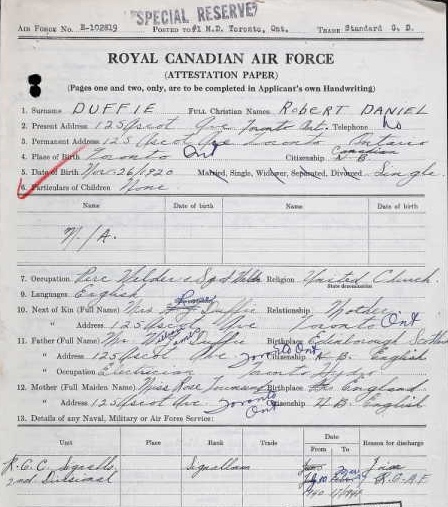 SPECIAL RESERVE
AIR FORCE NO. R-102819 POSTED TO #1 M.D. Toronto, Ont. TRADE Standard G. D.
ROYAL CANADIAN AIR FORCE
(ATTESTATION PAPER)
(Pages one and two, only, are to be completed in Applicant's own Handwriting)
1. Surname DUFFIE FULL CHRISTIAN NAMES ROBERT DANIEL
2. Present Address 125 Ascot Ave Toronto Ont. Telephone No
3. Permanent Address 125 Ascot Ave Toronto Ontario
4. Place of Birth Toronto Ont Citizenship Canadian
5. Date of Birth Nov. 26/1920 Married, Single, Widower, Separated, Divorced Single
6. Particulars of Children None
Name Date of birth Name Date of birth
N/A.
7. Occupation Religion United Church.
State denomination
9. Languages English
10. Next of Kin (Full Name) Mrs Duffie Relationship Mother
" Address 125 Ascot Ave Toronto Ont
11. Father (Full Name) Mr. Duffie Birthplace Scotland
" Address 125 Ascot Ave Toronto Ont Citizenship English
" Occupation Electrician Toronto Hydro
12. Mother (Full Maiden Name) Miss Rose Birthplace England
" Address 125 Ascot Ave. Toronto Ont Citizenship English
13. Details of any Naval, Military or Air Force Service:
Unit Place Rank Date Reason for discharge
From To
R.C.C. Signals Signalman Join
2nd Divisional R.C.A.F.